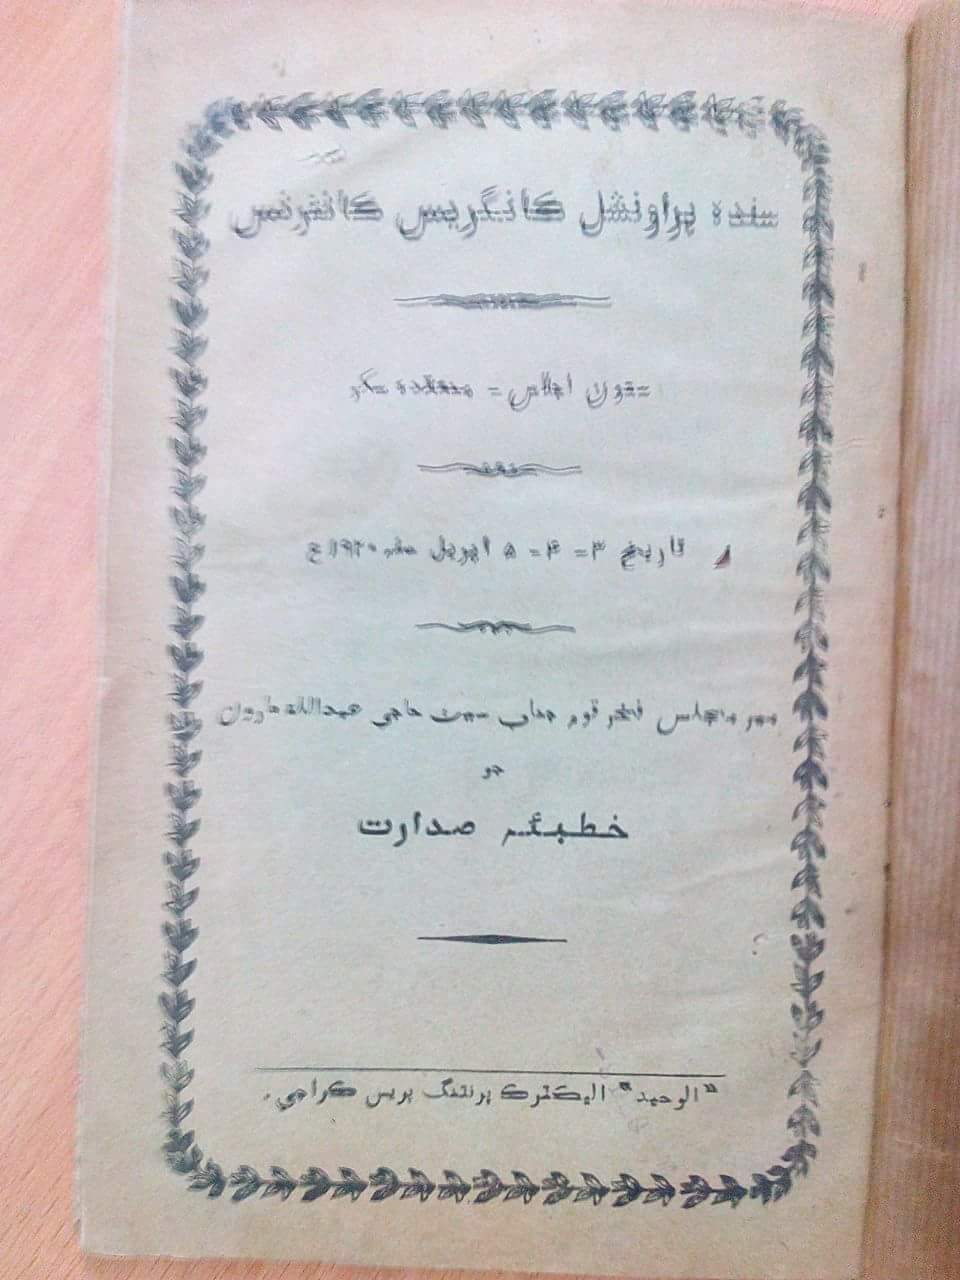 سنڌ پراونشل کانگریس کانفرنس
اجلاس = منعقده سکر
تاریخ ۳ = ۴ = ۵ اپریل سنه ۱۹۲۰ع
میر مجلس فخر قوم جناب سیٺ حاجي عبدالله هارون
جو
خطبئہ صدارت
"الوحید" الیڪٽرڪ پرنٽنگ پریس ڪراچي.